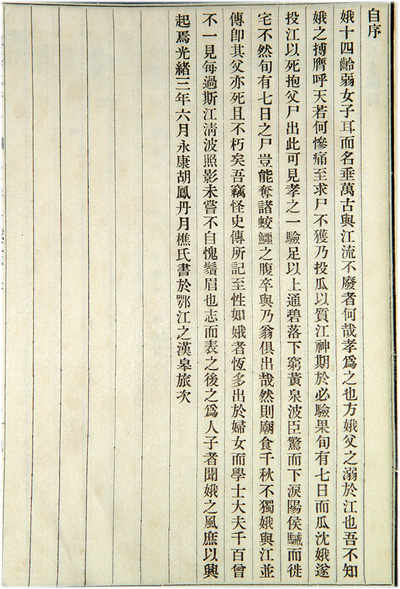 自序
娥十四齡弱女子耳而名垂萬古與江流不廢者何哉孝爲之也方娥父之溺於江也吾不知
娥之搏膺呼天若何慘痛至求尸不獲乃投瓜以質江神期於必驗果旬有七日而瓜沈娥遂
投江以死抱父尸出此可見孝之一驗足以上通碧落下窮黃泉波臣驚而下淚陽侯驖而徙
宅不然旬有七日之尸豈能奪諸蛟鱷之腹卒與乃翁俱出哉然則廟食千秋不獨娥與江並
傳卽其父亦死且不朽矣吾竊怪史傳所記至性如娥者恆多出於婦女而學士大夫千百曾
不一見每過斯江淸波照影未嘗不自愧鬚眉也志而表之後之爲人子者聞娥之風庶以興
起焉光緒三年六月永康胡鳳丹月樵氏書於鄂江之漢皋旅次